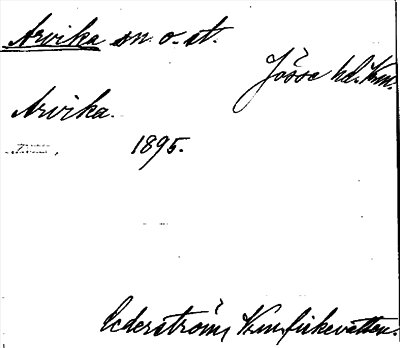 Arvika sn. o. st.
Jösse hd. Vrm.
Arvika.
1895.
Cederström, Vrm. fiskevatten.